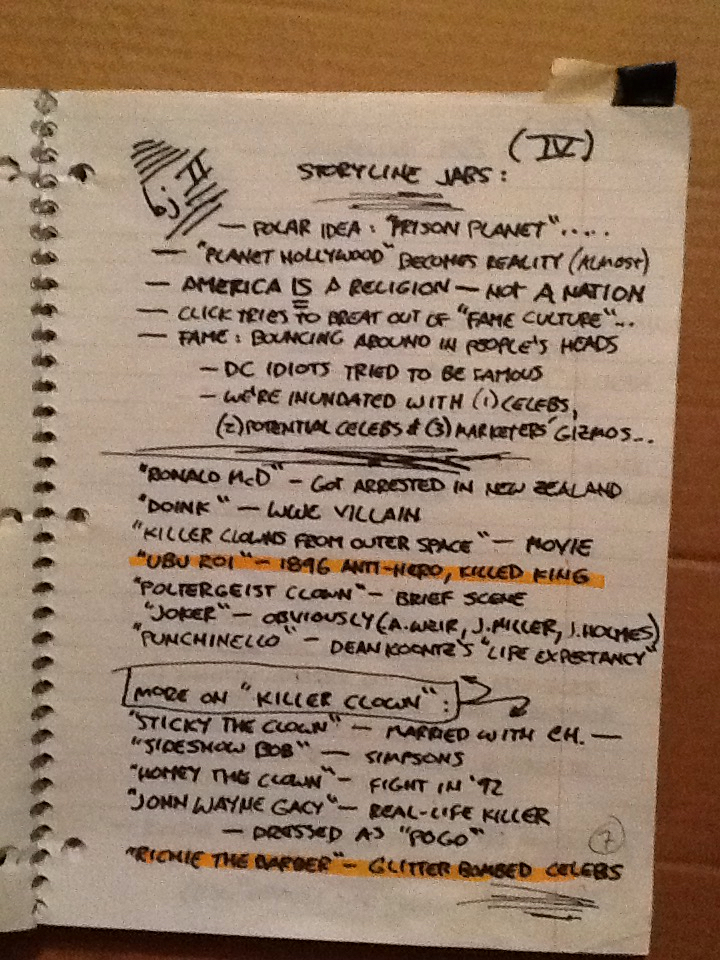 (IV)
STORYLINE JABS:
— POLAR IDEA: "PRISON PLANET".....
— "PLANET HOLLYWOOD" BECOMES REALITY (ALMOST)
— AMERICA IS A RELIGION — NOT A NATION
— CLICK TRIES TO BREAT OUT OF "FAME CULTURE"...
— FAME: BOUNCING AROUND IN PEOPLE'S HEADS
— DC IDIOTS TRIED TO BE FAMOUS
— WE'RE INUNDATED WITH (1) CELEBS,
(2) POTENTIAL CELEBS & (3) MARKETERS' GIZMOS...
"RONALD McD" — GOT ARRESTED IN NEW ZEALAND
"DOINK" — WWE VILLAIN
"KILLER CLOWNS FROM OUTER SPACE" — MOVIE
"UBU ROI" — 1896 ANTI-HERO, KILLED KING
"POLTERGEIST CLOWN" — BRIEF SCENE
"JOKER" — OBVIOUSLY (A. WEIR, J. MILLER, J. HOLMES)
"PUNCHINELLO" — DEAN KOONTZ'S "LIFE EXPECTANCY"
MORE ON "KILLER CLOWN":
"STICKY THE CLOWN" — MARRIED WITH CH. —
"SIDESHOW BOB" — SIMPSONS
"HOMEY THE CLOWN" — FIGHT IN '92
"JOHN WAYNE GACY" — REAL-LIFE KILLER
— DRESSED AS "POGO"
7
"RICHIE THE BARBER" — GLITTER BOMBED CELEBS